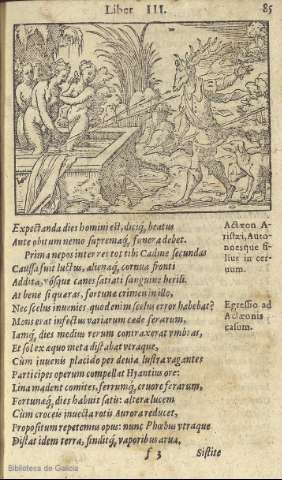 Liber III.
85
Expectanda dies homini est, diciq́; beatus
Ante obitum nemo supremaq́; funera debet.
Prima nepos inter res tot tibi Cadme secundas
Caussa fuit luctus, alienaq́; cornua fronti
Addita, vósque canes satiati sanguine herili.
At bene si quæras, fortunæ crimen in illo,
Nec scelus inuenies: quod enim scelus error habebat?
Mons erat infectus variarum cæde ferarum,
Iamq́; dies medius rerum contraxerat vmbras,
Et sol ex æquo meta distabat vtraque,
Cùm iuuenis placido per deuia lustra vagantes
Participes operum compellat Hyantius ore:
Lina madent comites, ferrumq́; cruore ferarum,
Fortunæq́; dies habuit satis: altera lucem
Cùm croceis inuecta rotis Aurora reducet,
Propositum repetemus opus: nunc Phœbus vtraque
Distat idem terra, finditq́; vaporibus arua,
f 3 Sistite
Actæon A-
ristæi, Auto-
noesque fi-
lius in cer-
uum.
Egressio ad
Actæonis
casum.
Biblioteca de Galicia